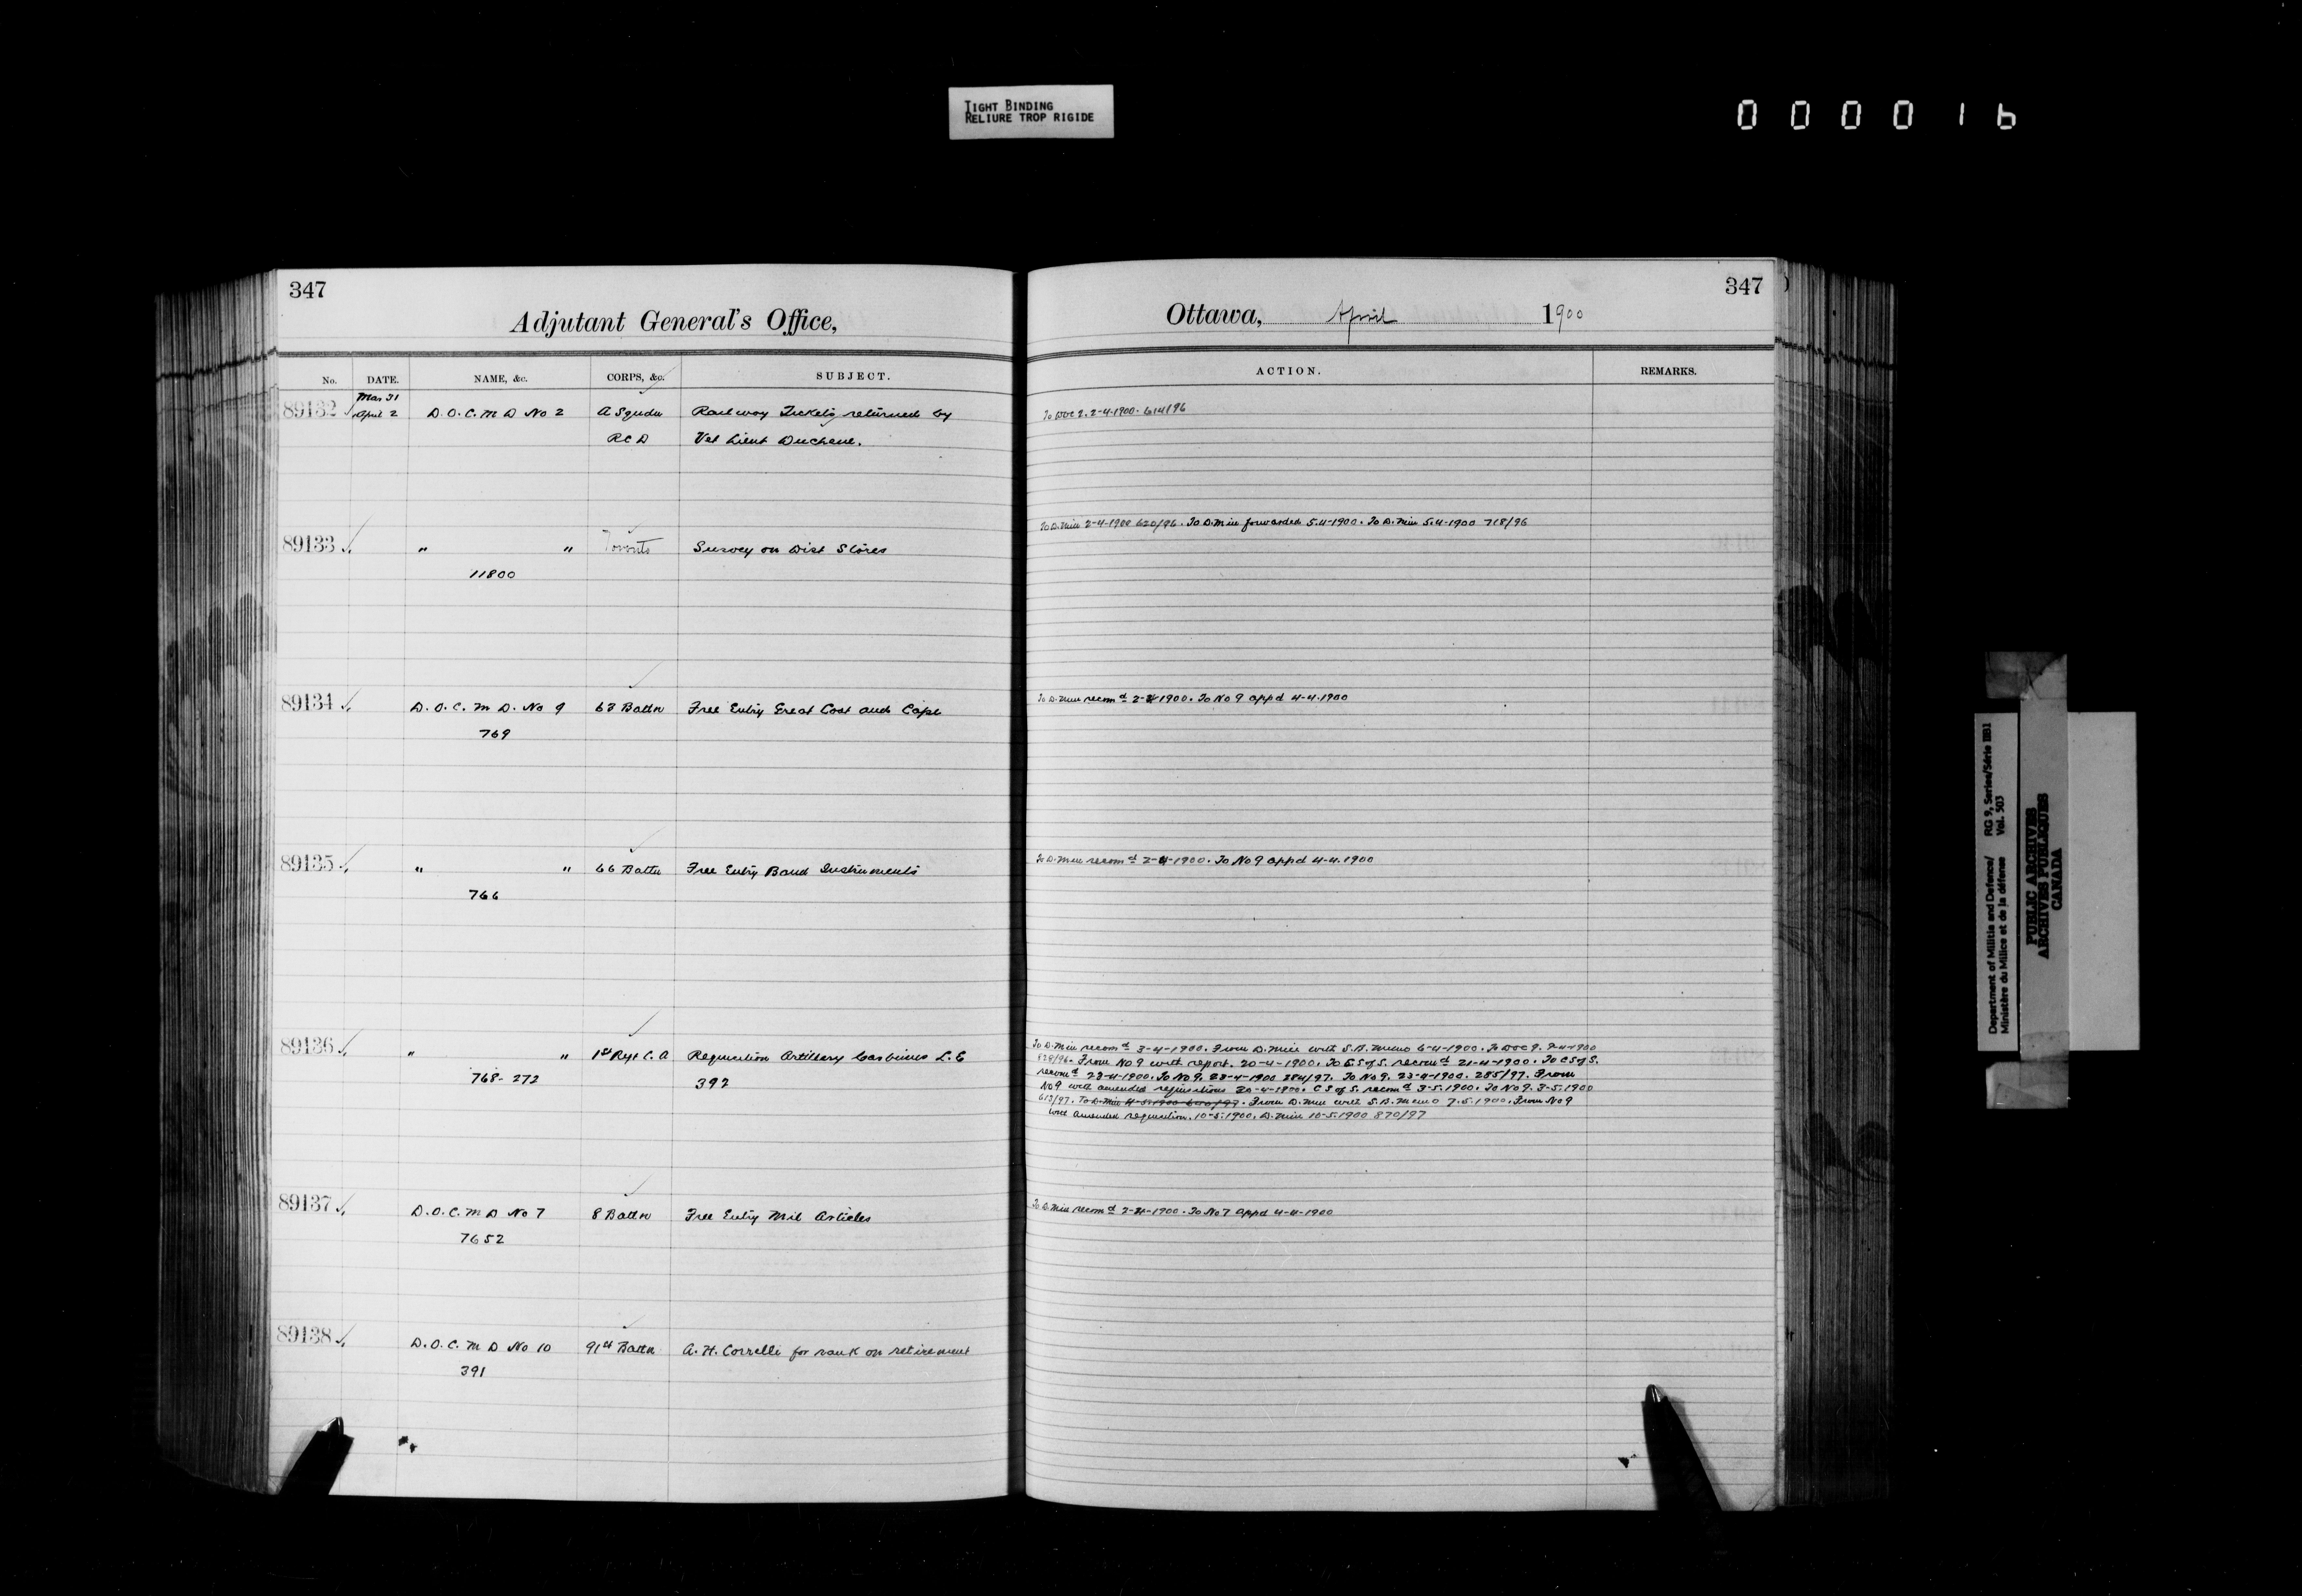 TIGHT BINDING
RELIURE TROP RIGIDE
000016
347
Adjutant General's Office,
No. DATE. NAME, &c. CORPS, &c. SUBJECT.
Mar 31
89132 April 2 D.O.C. M D No 2 A Sqdn Railway Tickets returned by
RCD Vet Lieut Duchene.
89133 " " Toronto Survey on Dist Stores
11800
89134 D.O.C. M D. No 9 63 Battn Free Entry Great Coat and Cape
769
89135 " " 66 Battn Free Entry Band Instruments
766
89136 " " 1st Regt C.A Requisition Artillery Carbines L.E
768-272 392
89137 D.O.C. M D No 7 8 Battn Free Entry Mil Articles
7652
89138 D.O.C. M D No 10 91st Battn A.H. Correlli for rank on retirement
391
347
Ottawa, April 1900
ACTION. REMARKS.
To DOC 2. 2-4-1900. 614/96
To D.Min 2-4-1900 620/96. To D.Min forwarded 5.4-1900. To D.Min 5.4-1900 718/96
To D.Min recomd 2-4-1900. To No 9 appd 4-4.1900
To D.Min recomd 2-4-1900. To No 9 appd 4-4.1900
To D.Min recomd 3-4-1900. From D.Min with S.B. Memo 6-4-1900. To DOC 9. 9-4-1900
828/96. From No 9 with report. 20-4-1900. To C S of S. recomd 21-4-1900. To C S of S.
recomd 23-4-1900. To No 9. 23-4-1900 284/97. To No 9. 23-4-1900. 285/97. From
No 9 with amended requisitions 30-4-1900. C S of S. recomd 3-5.1900. To No 9. 3-5.1900
613/97. To D.Min 4-5.1900 /97. From D.Min with S.B. Memo 7.5.1900. From No 9
with amended requisition. 10-5.1900. D.Min 10-5.1900 870/97
To D.Min recomd 2-4-1900. To No 7 appd 4-4-1900
Department of Militia and Defence/ RG 9, Series/Série IIB1
Ministère du Milice et de la défense Vol. 503
PUBLIC ARCHIVES
ARCHIVES PUBLIQUES
CANADA